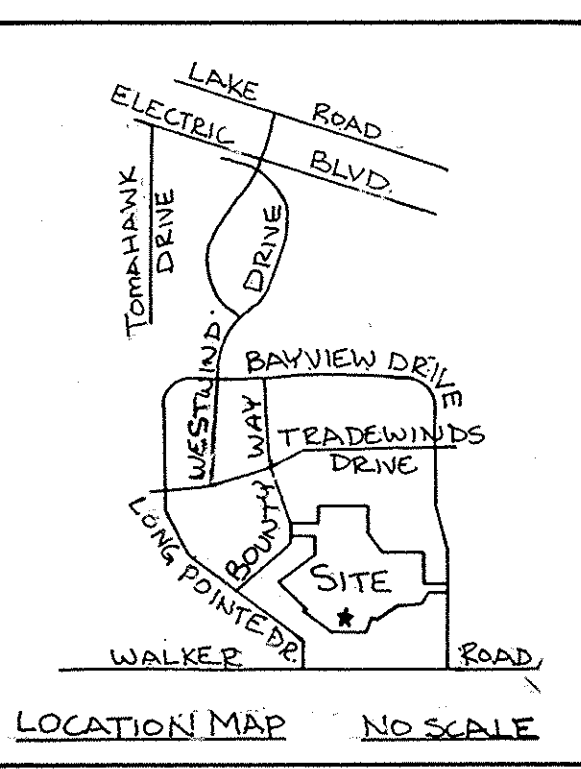 LAKE ROAD
ELECTRIC BLVD.
TOMAHAWK
DRIVE
WESTWIND. DRIVE
BAYVIEW DRIVE
BOUNTY WAY
TRADEWINDS
DRIVE
LONG POINTE DR.
SITE
WALKER ROAD
LOCATION MAP NO SCALE